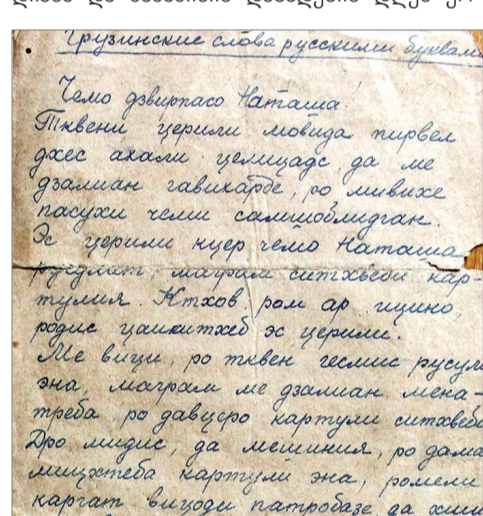 Грузинские слова русскими буквами
Чемо дзвирпасо Наташа!
Тквени церили мовида пирвел
джес ахали целицадс, да ме
дзалиан гавихарбе, ро мивихе
пасухи чеми самшоблидган.
Эс церили нцер чемо Наташа
русулат, маграм ситхвеби кар-
тулия. Ктхов ром ар ицино,
родис цаикитхеб эс церили.
Ме вици, ро тквен гесмис русули
эна, маграм ме дзалиан мена-
треба ро давцеро картули ситхвеби
Дро мидис, да мешиния, ро дама
мицхтеба картули эна, ромели
каргат вицоди патробазе да